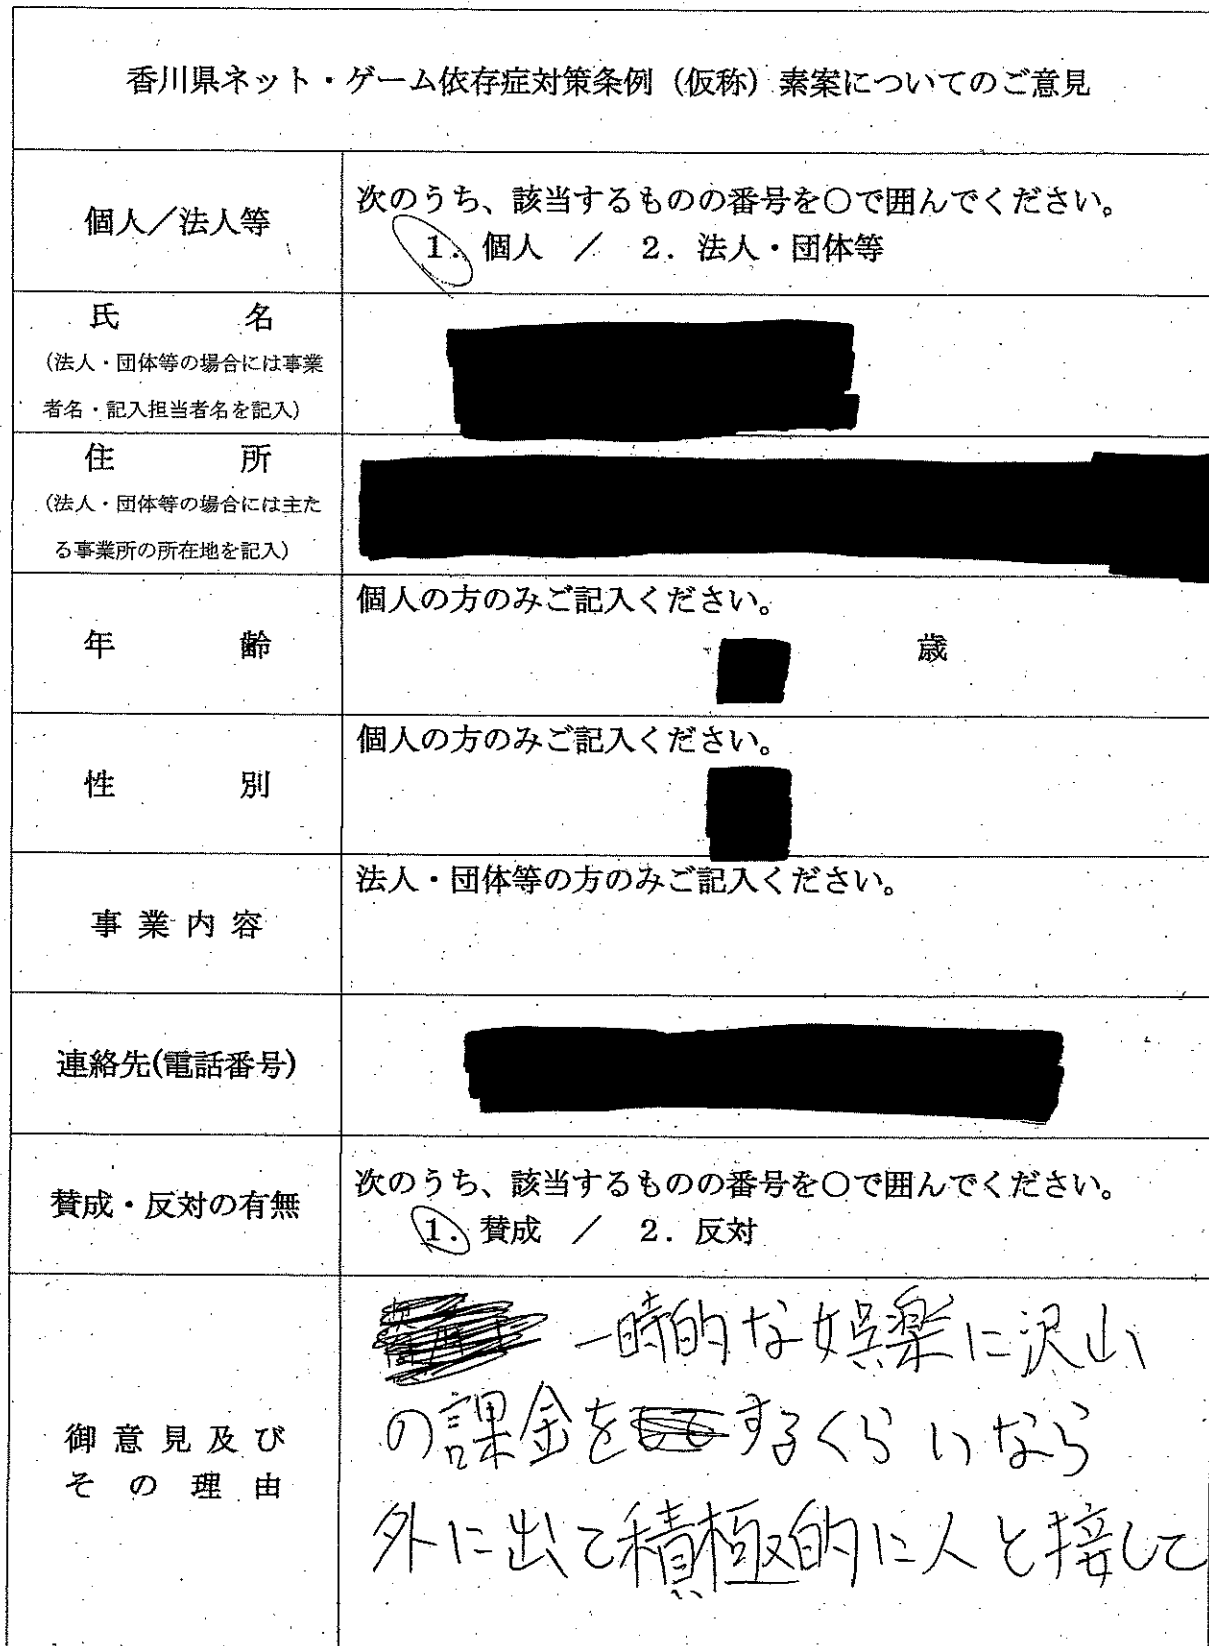 香川県ネット・ゲーム依存症対策条例（仮称）素案についてのご意見
個人／法人等
次のうち、該当するものの番号を○で囲んでください。
1. 個人 ／ 2. 法人・団体等
氏 名
（法人・団体等の場合には事業
者名・記入担当者名を記入）
住 所
（法人・団体等の場合には主た
る事業所の所在地を記入）
年 齢
個人の方のみご記入ください。
歳
性 別
個人の方のみご記入ください。
事業内容
法人・団体等の方のみご記入ください。
連絡先(電話番号)
賛成・反対の有無
次のうち、該当するものの番号を○で囲んでください。
1. 賛成 ／ 2. 反対
御意見及び
その理由
一時的な娯楽に沢山
の課金をするくらいなら
外に出て積極的に人と接して